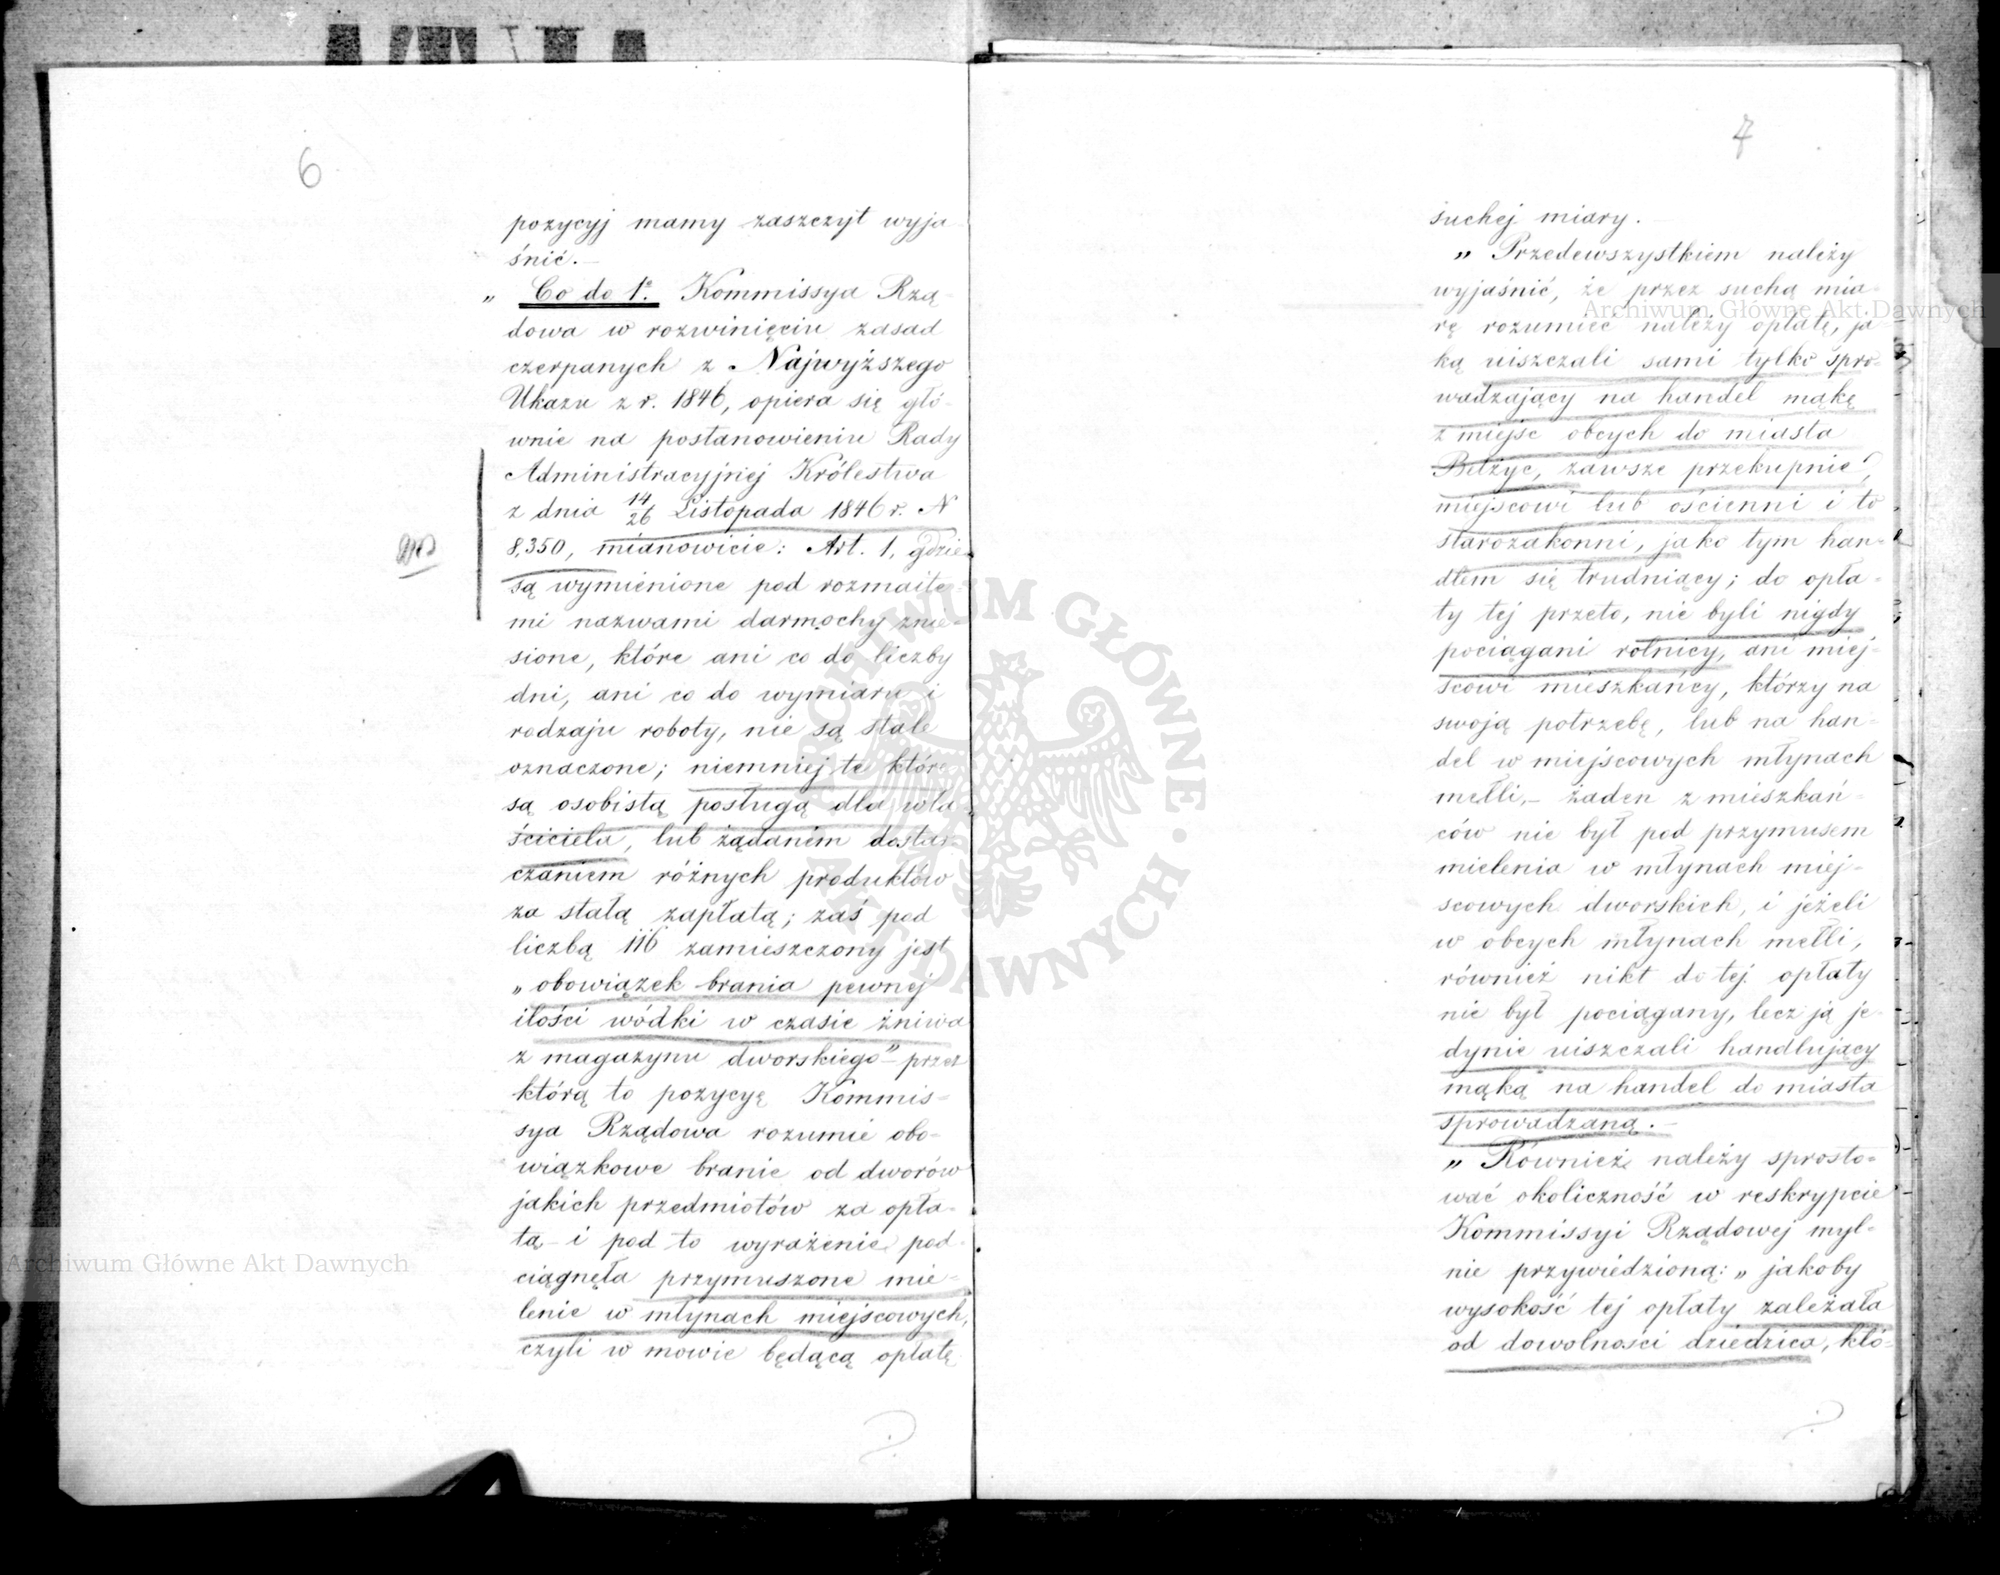 6
pozycyj mamy zaszczyt wyja
śnić. —
„ Co do 1º. Kommissya Rzą-
dowa w rozwinięciu zasad
czerpanych z Najwyższego
Ukazu z r. 1846, opiera się głó-
wnie na postanowieniu Rady
Administracyjnej Królestwa
z dnia 14/26 Listopada 1846 r. N
8,350, mianowicie: Art. 1, gdzie
są wymienione pod rozmaite-
mi nazwami darmochy znie-
sione, które ani co do liczby
dni, ani co do wymiaru i
rodzaju roboty, nie są stale
oznaczone; niemniej te które
są osobistą posługą dla wła-
ściciela, lub żądaniem dostar-
czaniem różnych produktów
za stałą zapłatą; zaś pod
liczbą 116 zamieszczony jest
„obowiązek brania pewnej
ilości wódki w czasie żniwa
z magazynu dworskiego” – przez
którą to pozycyę Kommis-
sya Rządowa rozumie obo-
wiązkowe branie od dworów
jakich przedmiotów za opła-
tą – i pod to wyrażenie pod-
ciągnęła przymuszone mie-
lenie w młynach miejscowych,
czyli w mowie będącą opłatę
7
suchej miary. —
„ Przedewszystkiem należy
wyjaśnić, że przez suchą mia-
rę rozumieć należy opłatę, ja-
ką uiszczali sami tylko spro-
wadzający na handel mąkę
z miejsc obcych do miasta
Bełżyc, zawsze przekupnie,
miejscowi lub ościenni i to
starozakonni, jako tym han-
dlem się trudniący; do opła-
ty tej przeto, nie byli nigdy
pociągani rolnicy, ani miej-
scowi mieszkańcy, którzy na
swoją potrzebę, lub na han-
del w miejscowych młynach
mełli, – żaden z mieszkań-
ców nie był pod przymusem
mielenia w młynach miej-
scowych dworskich, i jeżeli
w obcych młynach mełli,
również nikt do tej opłaty
nie był pociągany, lecz ją je-
dynie uiszczali handlujący
mąką na handel do miasta
sprowadzaną. —
„ Również należy sprosto-
wać okoliczność w reskrypcie
Kommissyi Rządowej myl-
nie przywiedzioną: „jakoby
wysokość tej opłaty zależała
od dowolności dziedzica, któ-
Archiwum Główne Akt Dawnych
Archiwum Główne Akt Dawnych
ARCHIWUM GŁÓWNE AKT DAWNYCH